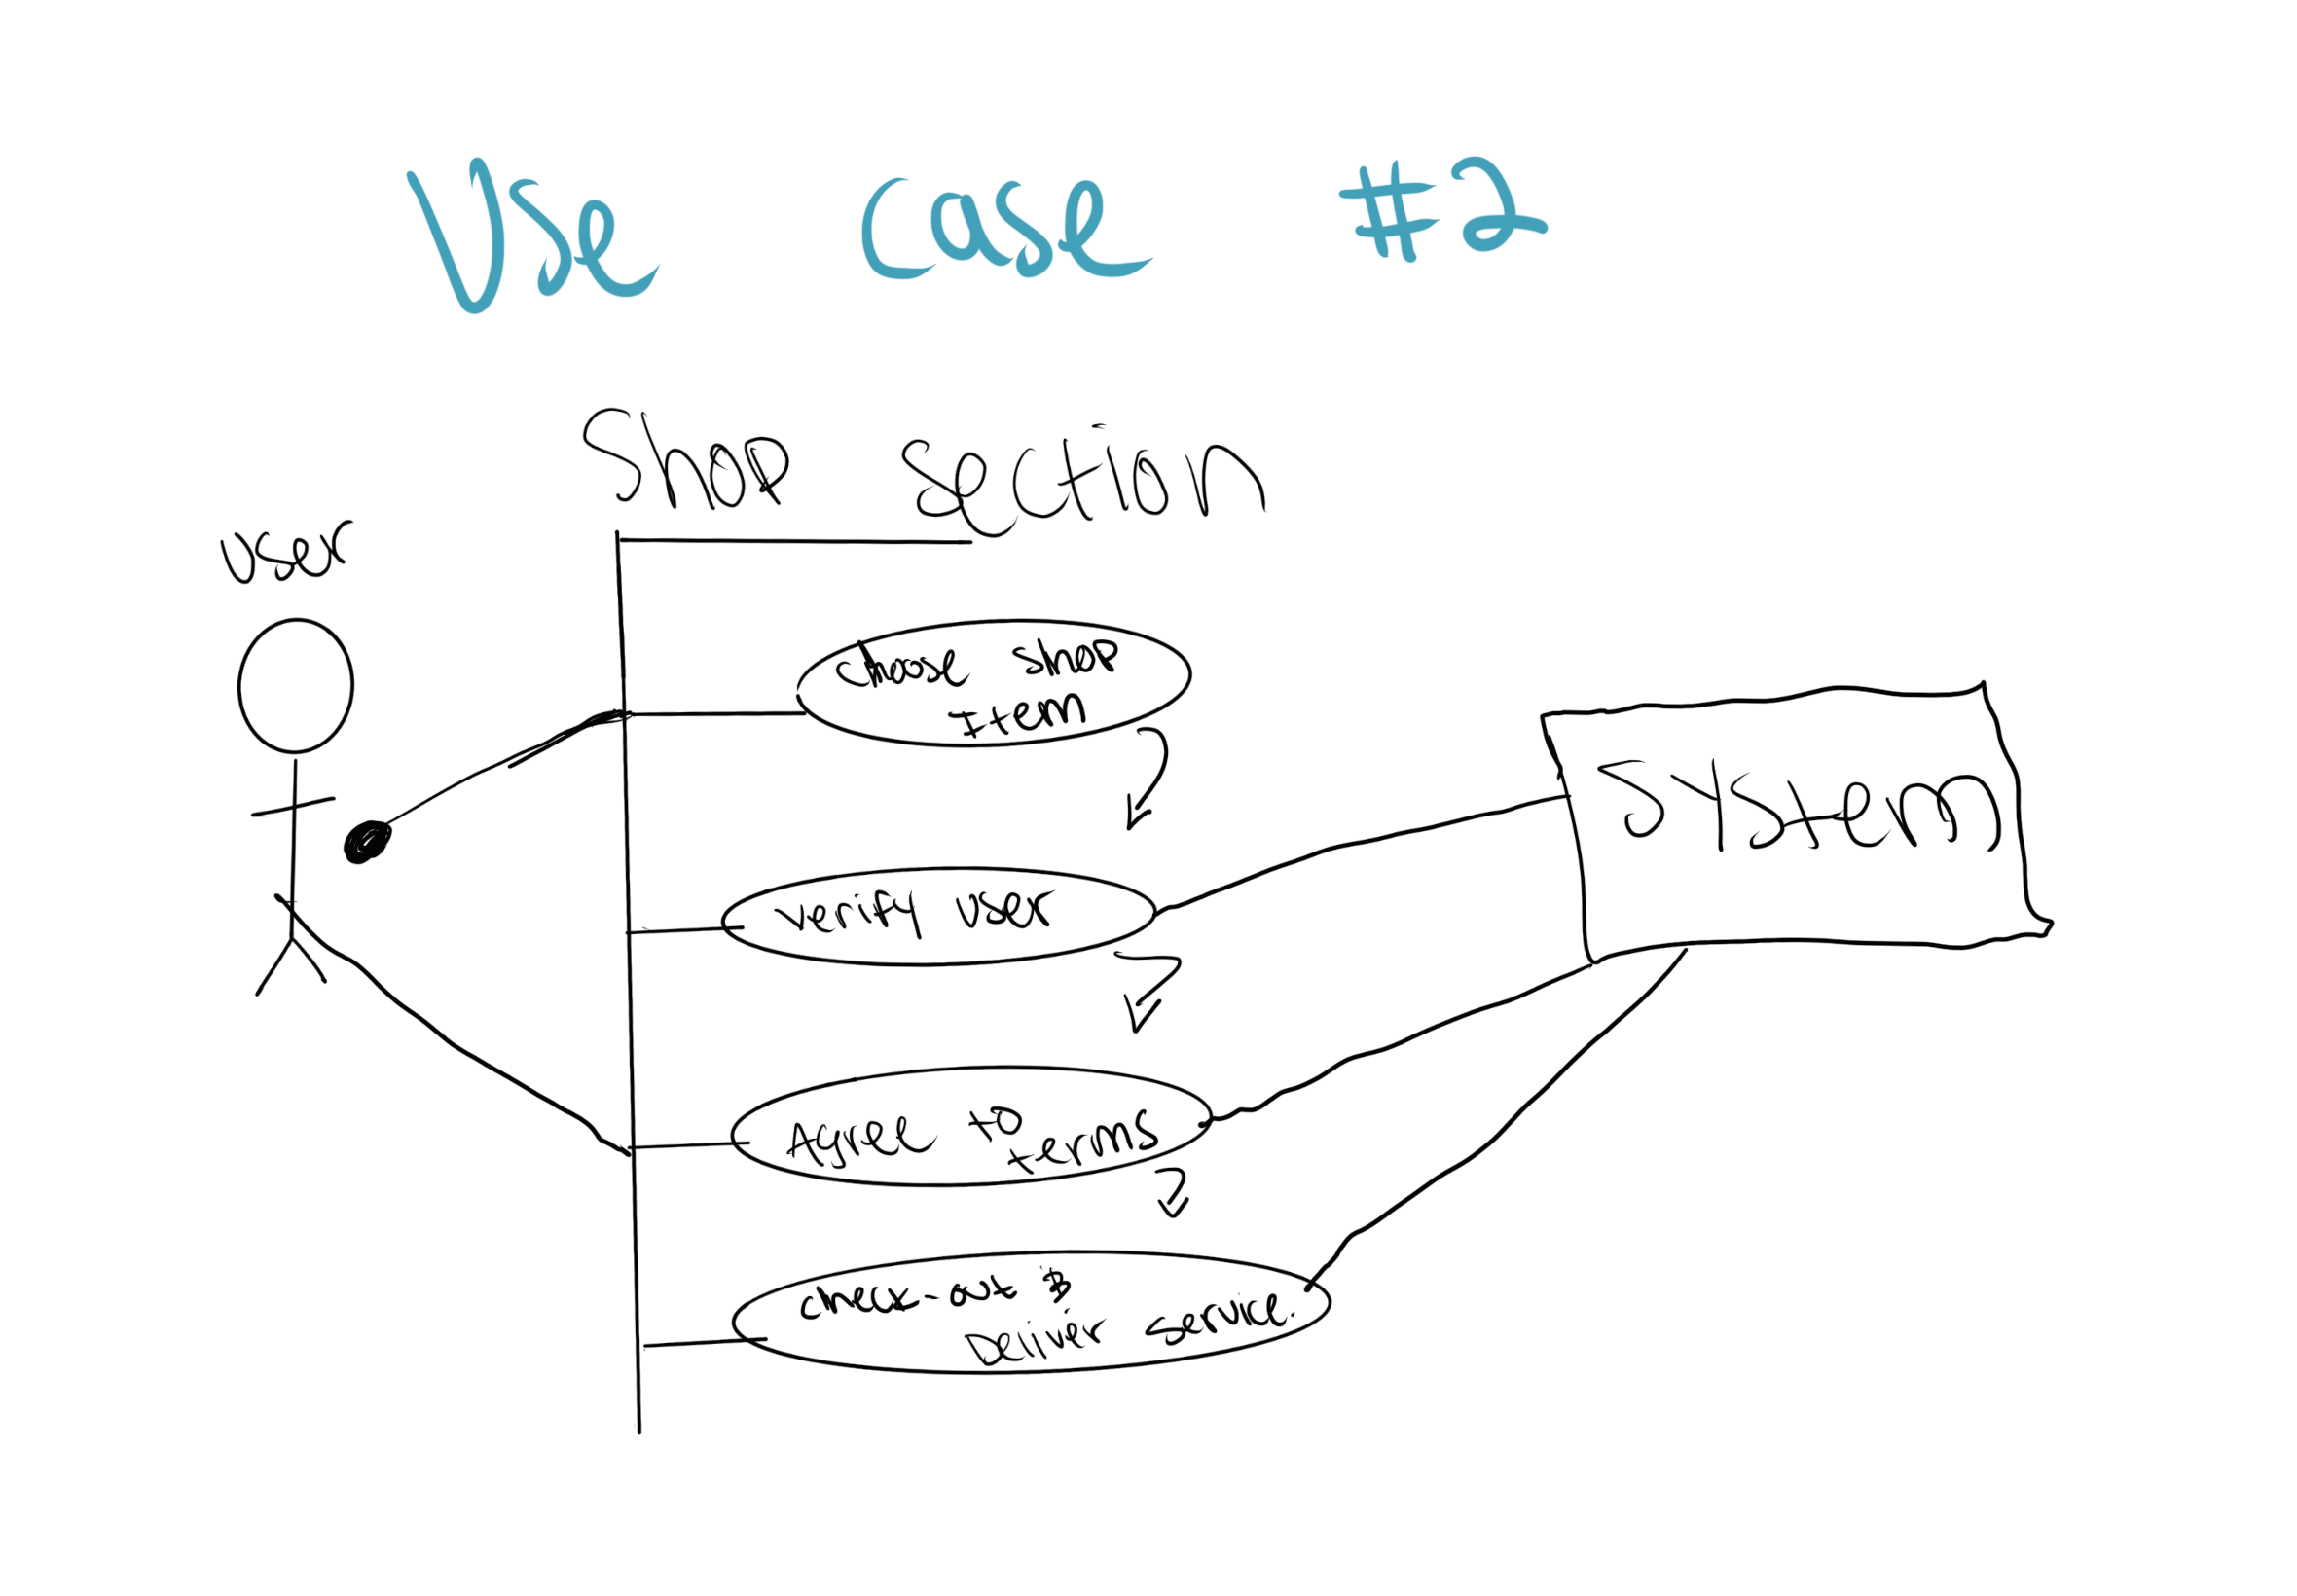 Use case #2
Shop section
user
choose shop
Item
system
verify user
Agree to
terms
check-out &
Deliver service.